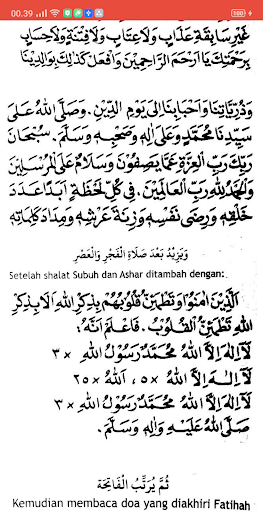 00.39
100
غَيْرِ سَابِقَةِ عَذَابٍ وَلَا عِتَابٍ وَلَا فِتْنَةٍ وَلَا حِسَابٍ
بِرَحْمَتِكَ يَا أَرْحَمَ الرَّاحِمِيْنَ وَافْعَلْ كَذٰلِكَ بِوَالِدِيْنَا
وَذُرِّيَّاتِنَا وَأَحْبَابِنَا إِلَى يَوْمِ الدِّيْنِ. وَصَلَّى اللهُ عَلَى
سَيِّدِنَا مُحَمَّدٍ وَعَلَى اٰلِهِ وَصَحْبِهِ وَسَلَّمَ. سُبْحَانَ
رَبِّكَ رَبِّ الْعِزَّةِ عَمَّا يَصِفُوْنَ وَسَلَامٌ عَلَى الْمُرْسَلِيْنَ
وَالْحَمْدُ لِلّٰهِ رَبِّ الْعَالَمِيْنَ. فِي كُلِّ لَحْظَةٍ أَبَدًا عَدَدَ
خَلْقِهِ وَرِضَى نَفْسِهِ وَزِنَةَ عَرْشِهِ وَمِدَادَ كَلِمَاتِهِ
وَيَزِيْدُ بَعْدَ صَلَاةِ الْفَجْرِ وَالْعَصْرِ
Setelah shalat Subuh dan Ashar ditambah dengan:
الَّذِيْنَ اٰمَنُوْا وَتَطْمَئِنُّ قُلُوْبُهُمْ بِذِكْرِ اللهِ أَلَا بِذِكْرِ
اللهِ تَطْمَئِنُّ الْقُلُوْبُ. فَاعْلَمْ أَنَّهُ:
لَا إِلٰهَ إِلَّا اللهُ مُحَمَّدٌ رَسُوْلُ اللهِ ×٣
لَا إِلٰهَ إِلَّا اللهُ ×٥٠، اَللهُ ×٢٥
لَا إِلٰهَ إِلَّا اللهُ مُحَمَّدٌ رَسُوْلُ اللهِ ×٣
صَلَّى اللهُ عَلَيْهِ وَاٰلِهِ وَسَلَّمَ.
ثُمَّ يُرَتِّبُ الْفَاتِحَةَ
Kemudian membaca doa yang diakhiri Fatihah